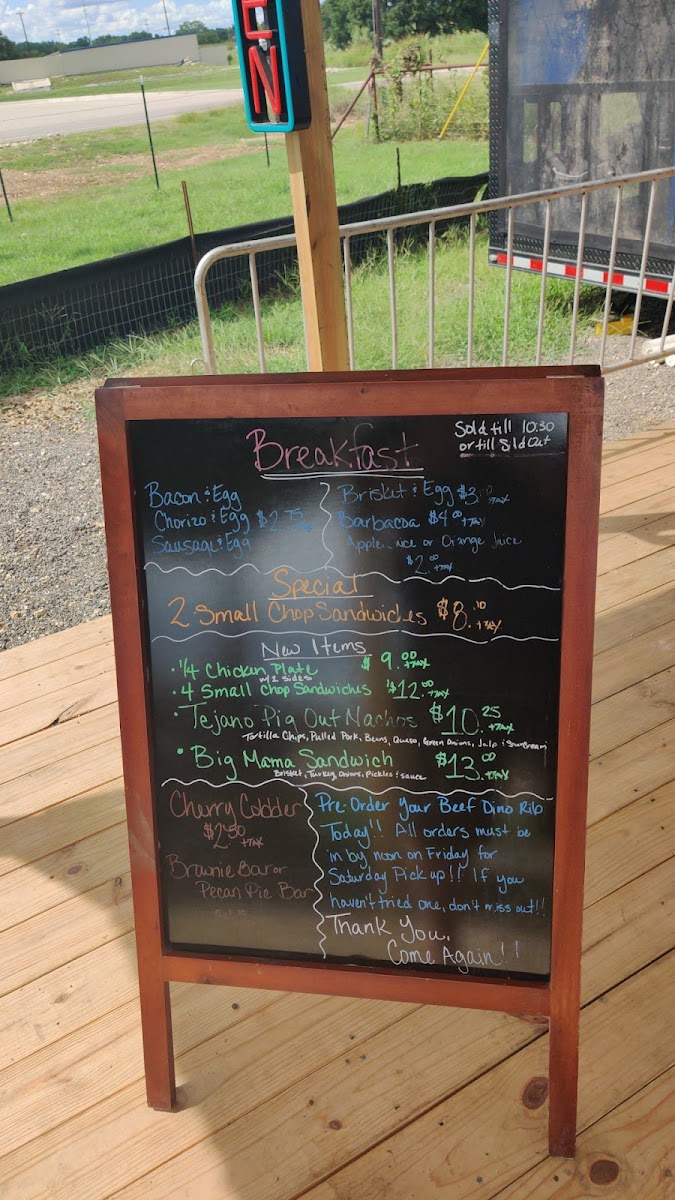 EN
Breakfast
Sold till 10:30
or till Sold Out
Bacon & Egg
Chorizo & Egg $2.75 +TAX
Sausage & Egg
Brisket & Egg $3. +TAX
Barbacoa $4.00 +TAX
Apple Juice or Orange Juice
$2.00 +TAX
Special
2 Small Chop Sandwiches $8.10 +TAX
New Items
• 1/4 Chicken Plate $9.00 +TAX
w/2 sides
• 4 Small Chop Sandwiches $12.00 +TAX
• Tejano Pig Out Nachos $10.25 +TAX
Tortilla Chips, Pulled Pork, Beans, Queso, Green Onions, Jalp & Sour Cream
• Big Mama Sandwich $13.00 +TAX
Brisket, Turkey, Onions, Pickles & sauce
Cherry Cobbler
$2.50 +TAX
Brownie Bar or
Pecan Pie Bar
Pre-Order Your Beef Dino Rib
Today!! All orders must be
in by noon on Friday for
Saturday Pick up!! If you
haven't tried one, don't miss out!!
Thank You,
Come Again!!